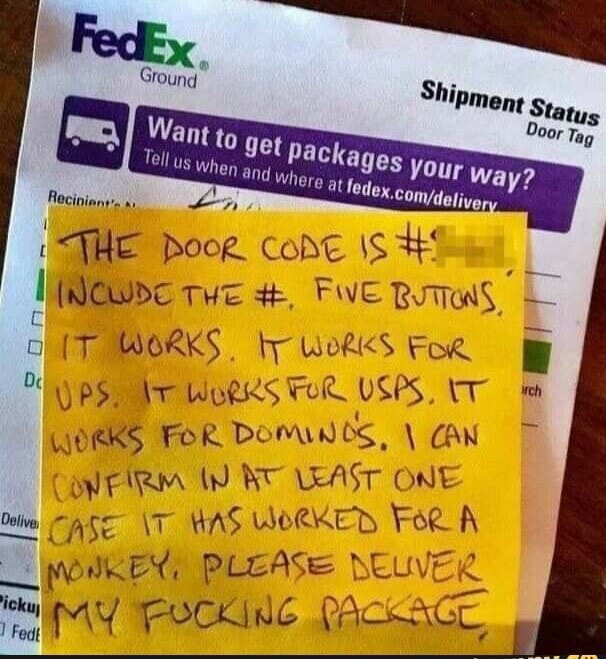 FedEx®
Ground
Shipment Status
Door Tag
Want to get packages your way?
Tell us when and where at fedex.com/delivery
THE DOOR CODE IS #
INCLUDE THE #. FIVE BUTTONS.
IT WORKS. IT WORKS FOR
UPS. IT WORKS FOR USPS. IT
WORKS FOR DOMINO'S. I CAN
CONFIRM IN AT LEAST ONE
CASE IT HAS WORKED FOR A
MONKEY. PLEASE DELIVER
MY FUCKING PACKAGE.